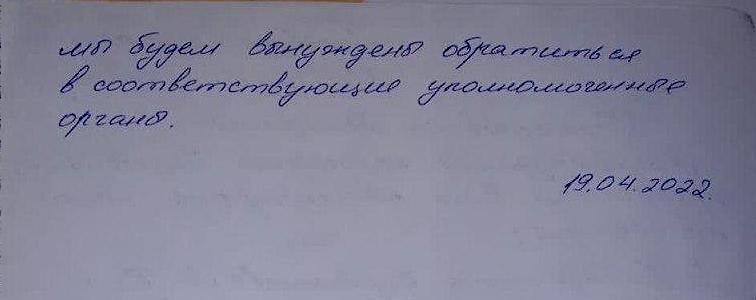 мы будем вынуждены обратиться
в соответствующие уполномоченные
органы.
19.04.2022.